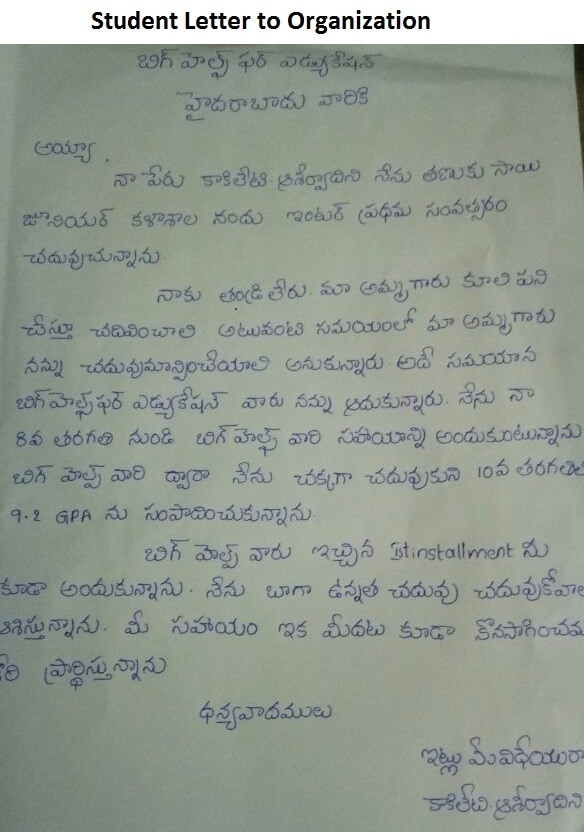 Student Letter to Organization
బిగ్ హెల్ప్ ఫర్ ఎడ్యుకేషన్
హైదరాబాదు వారికి
అయ్యా,
నా పేరు కాకిలేటి ఆశీర్వాదిని నేను తణుకు సాయి
జూనియర్ కళాశాల నందు ఇంటర్ ప్రథమ సంవత్సరం
చదువుచున్నాను.
నాకు తండ్రి లేరు. మా అమ్మగారు కూలి పని
చేస్తూ చదివించాలి. అటువంటి సమయంలో మా అమ్మగారు
నన్ను చదువుమాన్పించేయాలి అనుకున్నారు. అదే సమయాన
బిగ్ హెల్ప్ ఫర్ ఎడ్యుకేషన్ వారు నన్ను ఆదుకున్నారు. నేను నా
8వ తరగతి నుండి బిగ్ హెల్ప్ వారి సహాయాన్ని అందుకుంటున్నాను
బిగ్ హెల్ప్ వారి ద్వారా నేను చక్కగా చదువుకుని 10వ తరగతిలో
9.2 GPA ను సంపాదించుకున్నాను.
బిగ్ హెల్ప్ వారు ఇచ్చిన 1st installment ను
కూడా అందుకున్నాను. నేను బాగా ఉన్నత చదువు చదువుకోవాల
ఆశిస్తున్నాను. మీ సహాయం ఇక మీదటు కూడా కొనసాగించమ
ప్రార్థిస్తున్నాను
ధన్యవాదములు
ఇట్లు మీ విధేయురా
కాకిలేటి ఆశీర్వాదిని